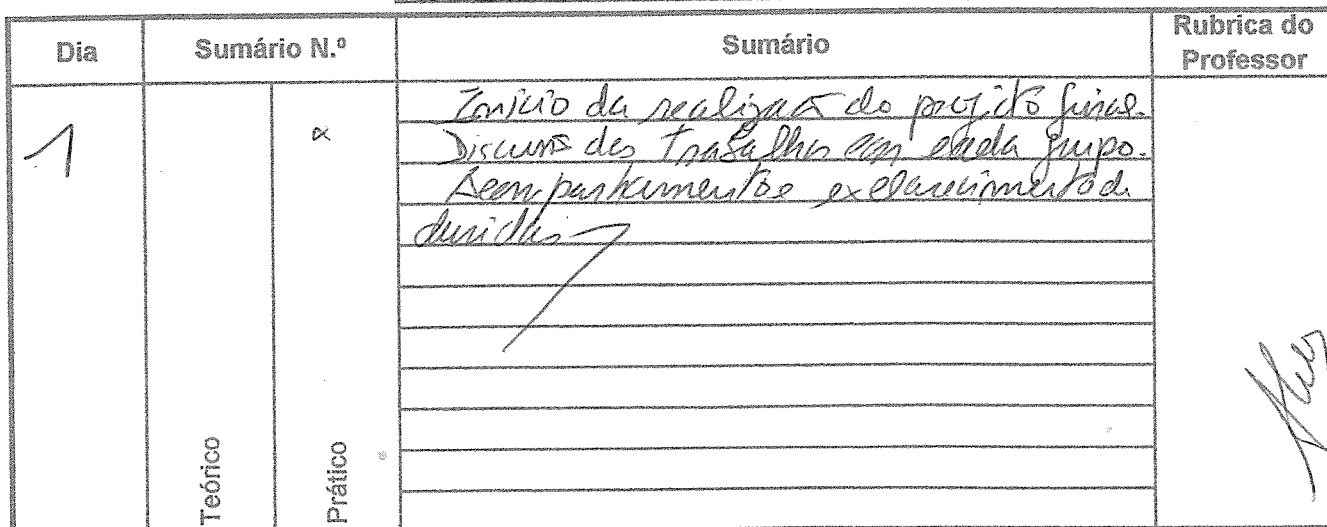 Dia
Sumário N.º
Sumário
Rubrica do
Professor
1
Início da realização do projecto final.
Discussão dos trabalhos com cada grupo.
Acompanhamento e esclarecimento de
dúvidas
Teórico
Prático